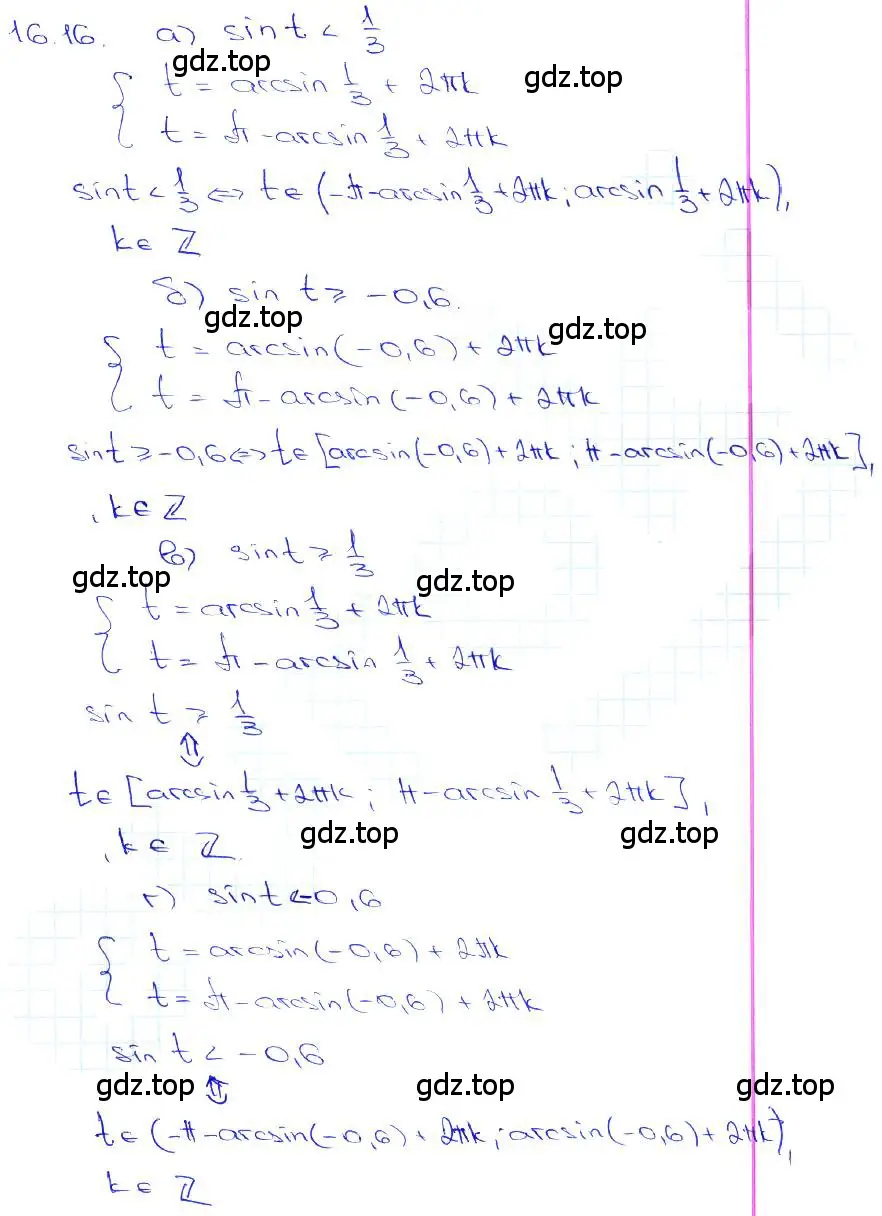 16.16. а) sin t < 1/3
gdz.top gdz.top
{ t = arcsin 1/3 + 2πk
t = π - arcsin 1/3 + 2πk
sin t < 1/3 ⇔ t ∈ (-π - arcsin 1/3 + 2πk; arcsin 1/3 + 2πk),
k ∈ ℤ
б) sin t ≥ -0,6.
gdz.top gdz.top
{ t = arcsin(-0,6) + 2πk
t = π - arcsin(-0,6) + 2πk
sin t ≥ -0,6 ⇔ t ∈ [arcsin(-0,6) + 2πk; π - arcsin(-0,6) + 2πk],
, k ∈ ℤ
в) sin t ≥ 1/3
gdz.top gdz.top
{ t = arcsin 1/3 + 2πk
t = π - arcsin 1/3 + 2πk
sin t ≥ 1/3
⇕
t ∈ [arcsin 1/3 + 2πk; π - arcsin 1/3 + 2πk],
gdz.top gdz.top
, k ∈ ℤ.
г) sin t < -0,6
{ t = arcsin(-0,6) + 2πk
t = π - arcsin(-0,6) + 2πk
sin t < -0,6
gdz.top ⇕ gdz.top gdz.top
t ∈ (-π - arcsin(-0,6) + 2πk; arcsin(-0,6) + 2πk),
k ∈ ℤ